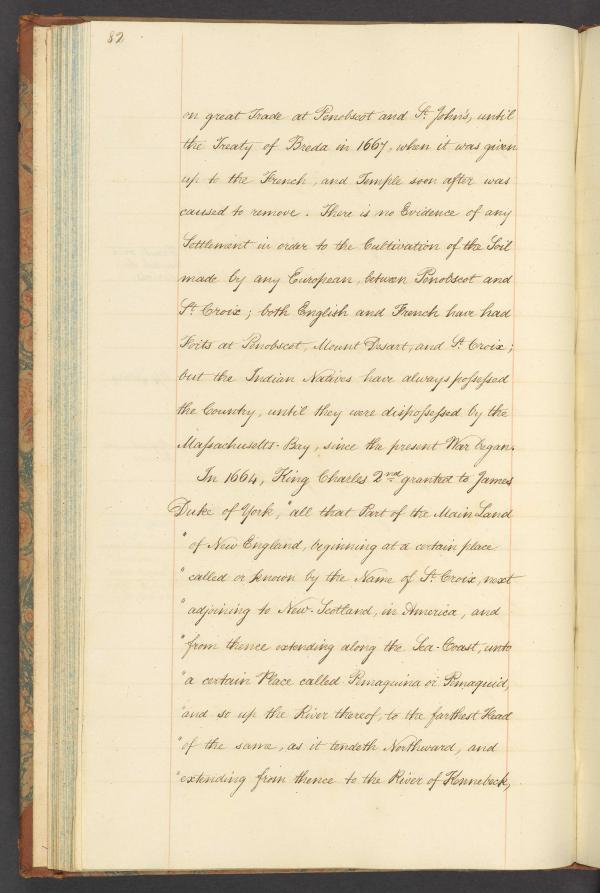 82
on great Trade at Penobscot and St. John's, until
the Treaty of Breda in 1667, when it was given
up to the French, and Temple soon after was
caused to remove. There is no Evidence of any
Settlement in order to the Cultivation of the Soil
made by any European, between Penobscot and
St. Croix; both English and French have had
Forts at Penobscot, Mount Desart, and St. Croix;
but the Indian Natives have always possessed
the Country, until they were dispossessed by the
Massachusetts-Bay, since the present War began.
In 1664, King Charles 2nd granted to James
Duke of York, "all that Part of the Main Land
"of New England, beginning at a certain place
"called or known by the Name of St. Croix, next
"adjoining to New-Scotland, in America, and
"from thence extending along the Sea-Coast, unto
"a certain Place called Pemaquina or Pemaquid,
"and so up the River thereof, to the farthest Head
"of the same, as it tendeth Northward, and
"extending from thence to the River of Kennebeck,